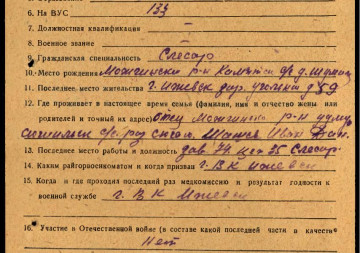 6. На ВУС 133
7. Должностная квалификация —
8. Военное звание —
9. Гражданская специальность Слесарь
10. Место рождения Можгинский р-н
11. Последнее место жительства г. Ижевск д 59
12. Где проживает в настоящее время семья (фамилия, имя и отчество жены или
родителей и точный их адрес) отец Можгинский р-н
Иван
13. Последнее место работы и должность зав. 74 цех 35 Слесарь
14. Каким райгорвоенкоматом и когда призван Г.В.К Ижевск
15. Когда и где проходил последний раз медкомиссию и результат годности к
военной службе Г.В.К Ижевск
16. Участие в Отечественной войне (в составе какой последней части в качестве
Нет